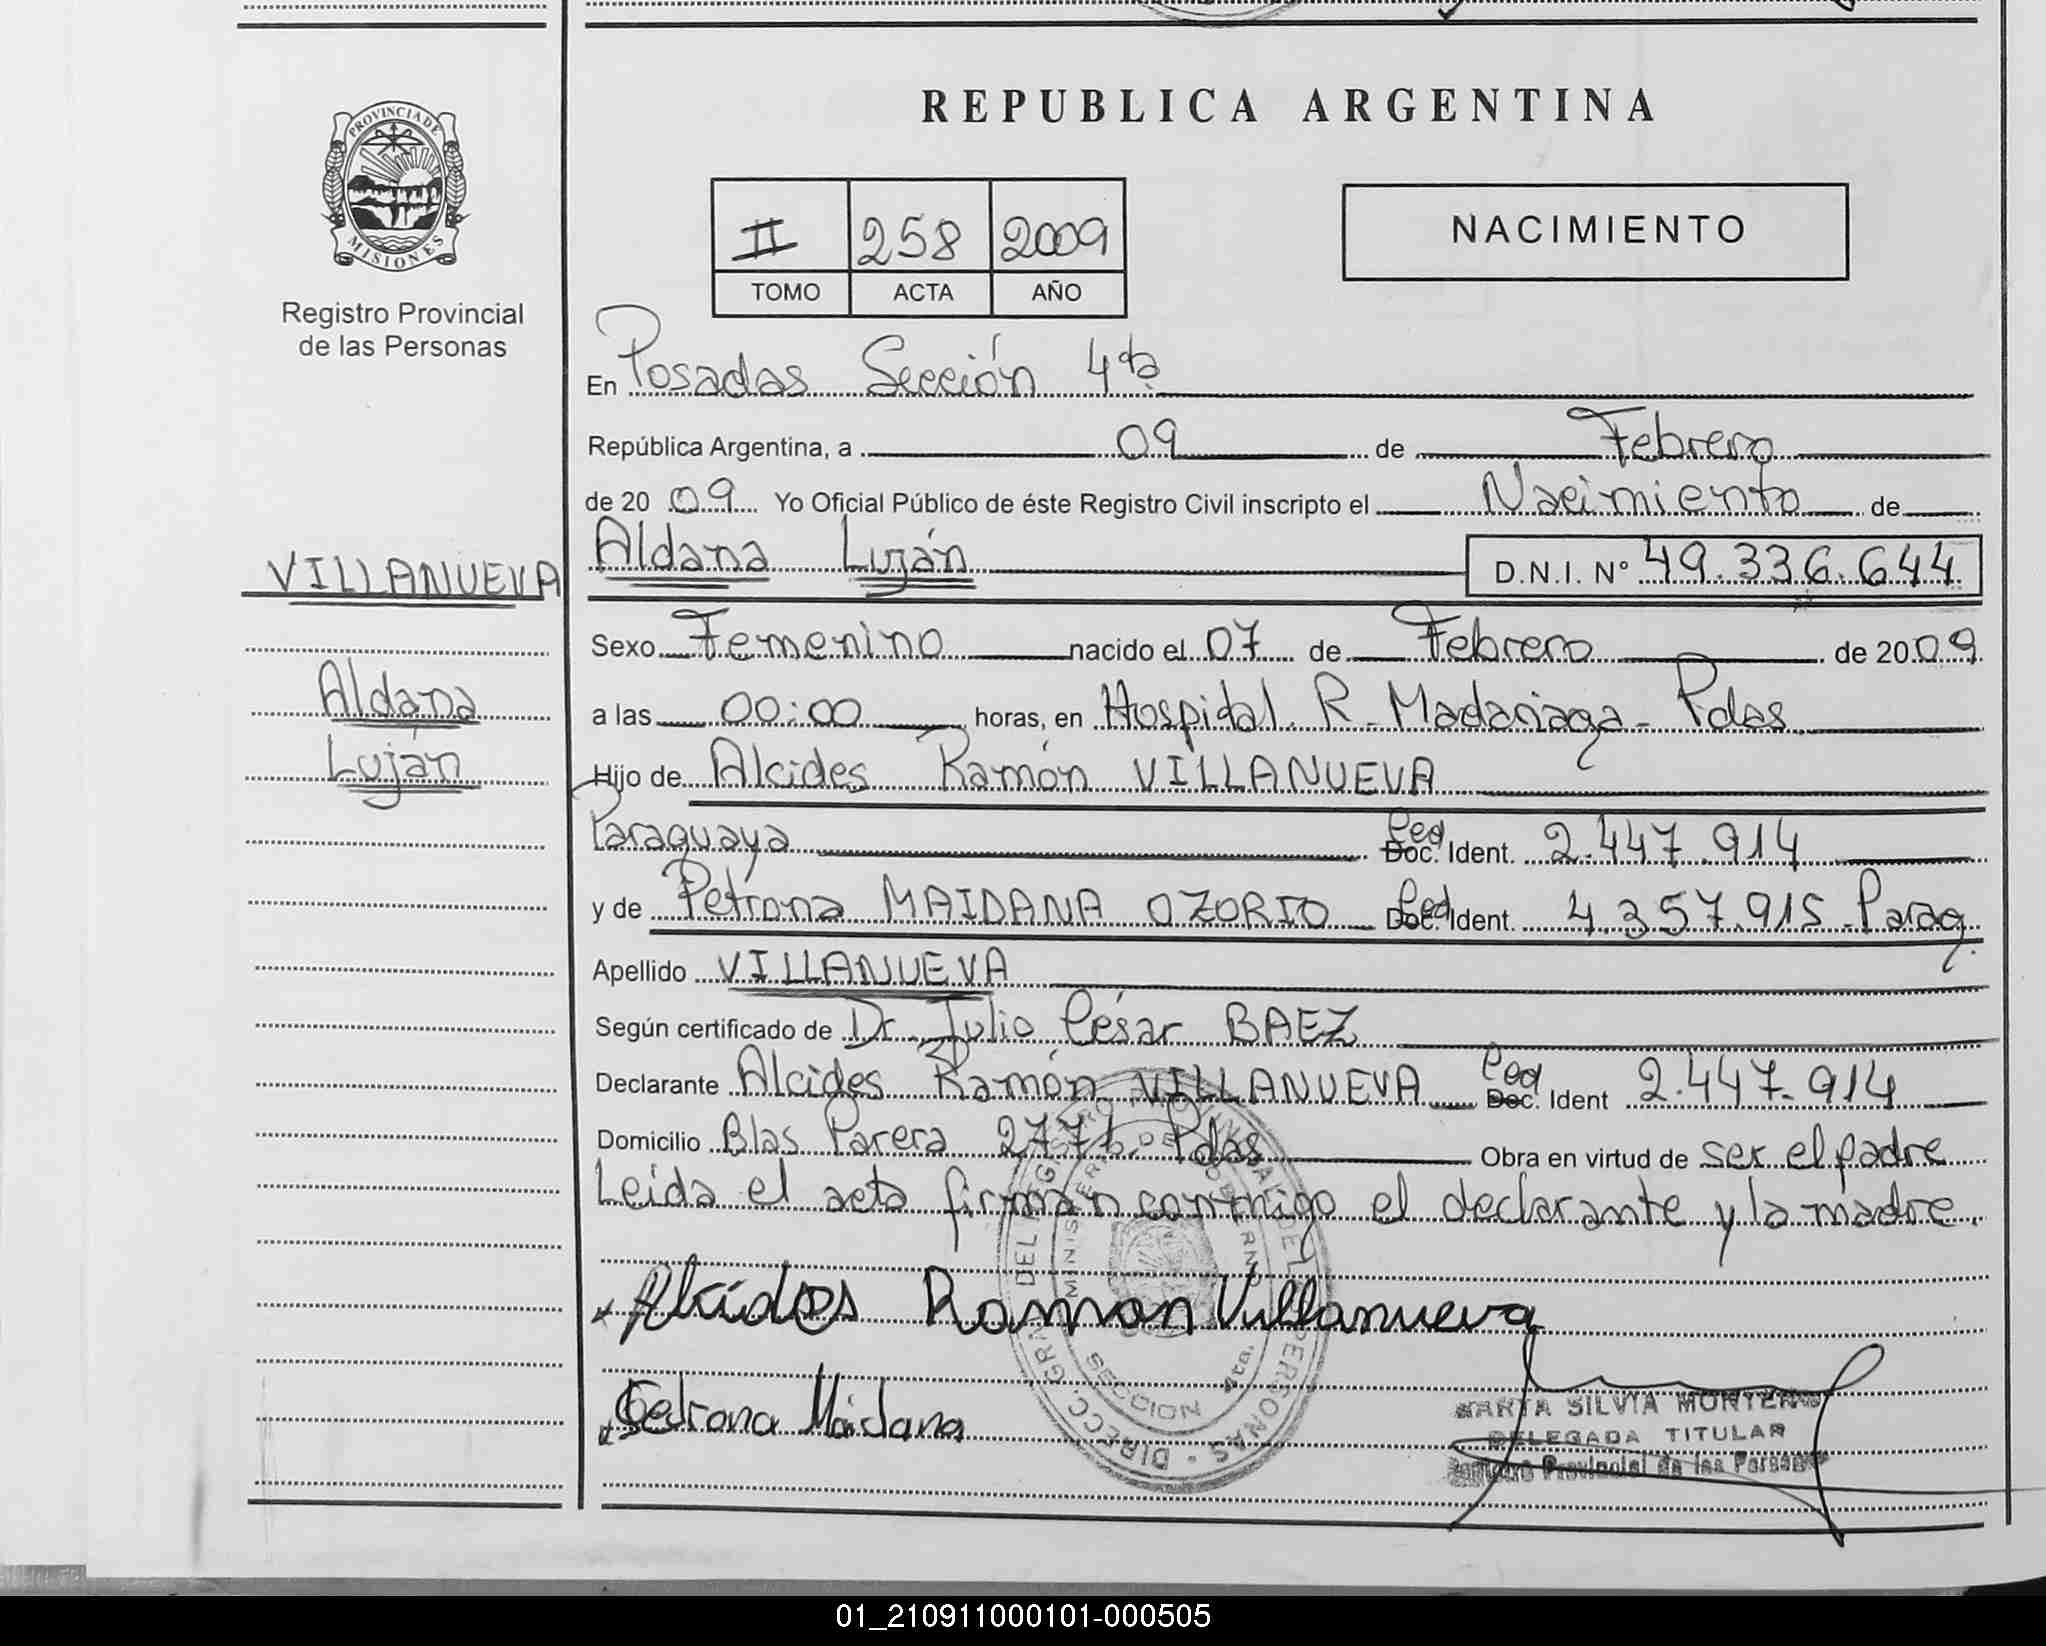 REPUBLICA ARGENTINA
PROVINCIA DE
MISIONES
Registro Provincial
de las Personas
II 258 2009
TOMO ACTA AÑO
NACIMIENTO
En Posadas Sección 4ta
República Argentina, a 09 de Febrero
de 20 09 Yo Oficial Público de éste Registro Civil inscripto el Nacimiento de
VILLANUEVA
Aldana Luján D.N.I. N° 49.336.644
Sexo Femenino nacido el 07 de Febrero de 20 09
Aldana
Luján
a las 00:00 horas, en Hospital R. Madariaga - Pdas
Hijo de Alcides Ramón VILLANUEVA
Paraguaya Ced Doc. Ident. 2.447.914
y de Petrona MAIDANA OZORIO Ced Doc. Ident. 4.357.915 Parag.
Apellido VILLANUEVA
Según certificado de Dr. Julio César BAEZ
Declarante Alcides Ramón VILLANUEVA Ced Doc. Ident 2.447.914
Domicilio Blas Parera Pdas Obra en virtud de ser el padre
Leida el acta firman conmigo el declarante y la madre.
Alcides Ramon Villanueva
Petrona Maidana
SILVIA
DELEGADA TITULAR
Registro Provincial de las Personas
01_210911000101-000505